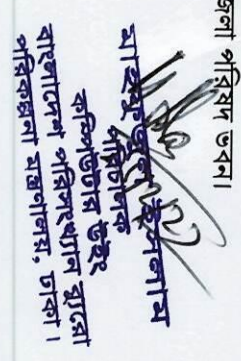 জেলা পরিষদ ভবন।
ইসলাম
পরিচালক
কম্পিউটার উইং
বাংলাদেশ পরিসংখ্যান ব্যুরো
পরিকল্পনা মন্ত্রণালয়, ঢাকা।